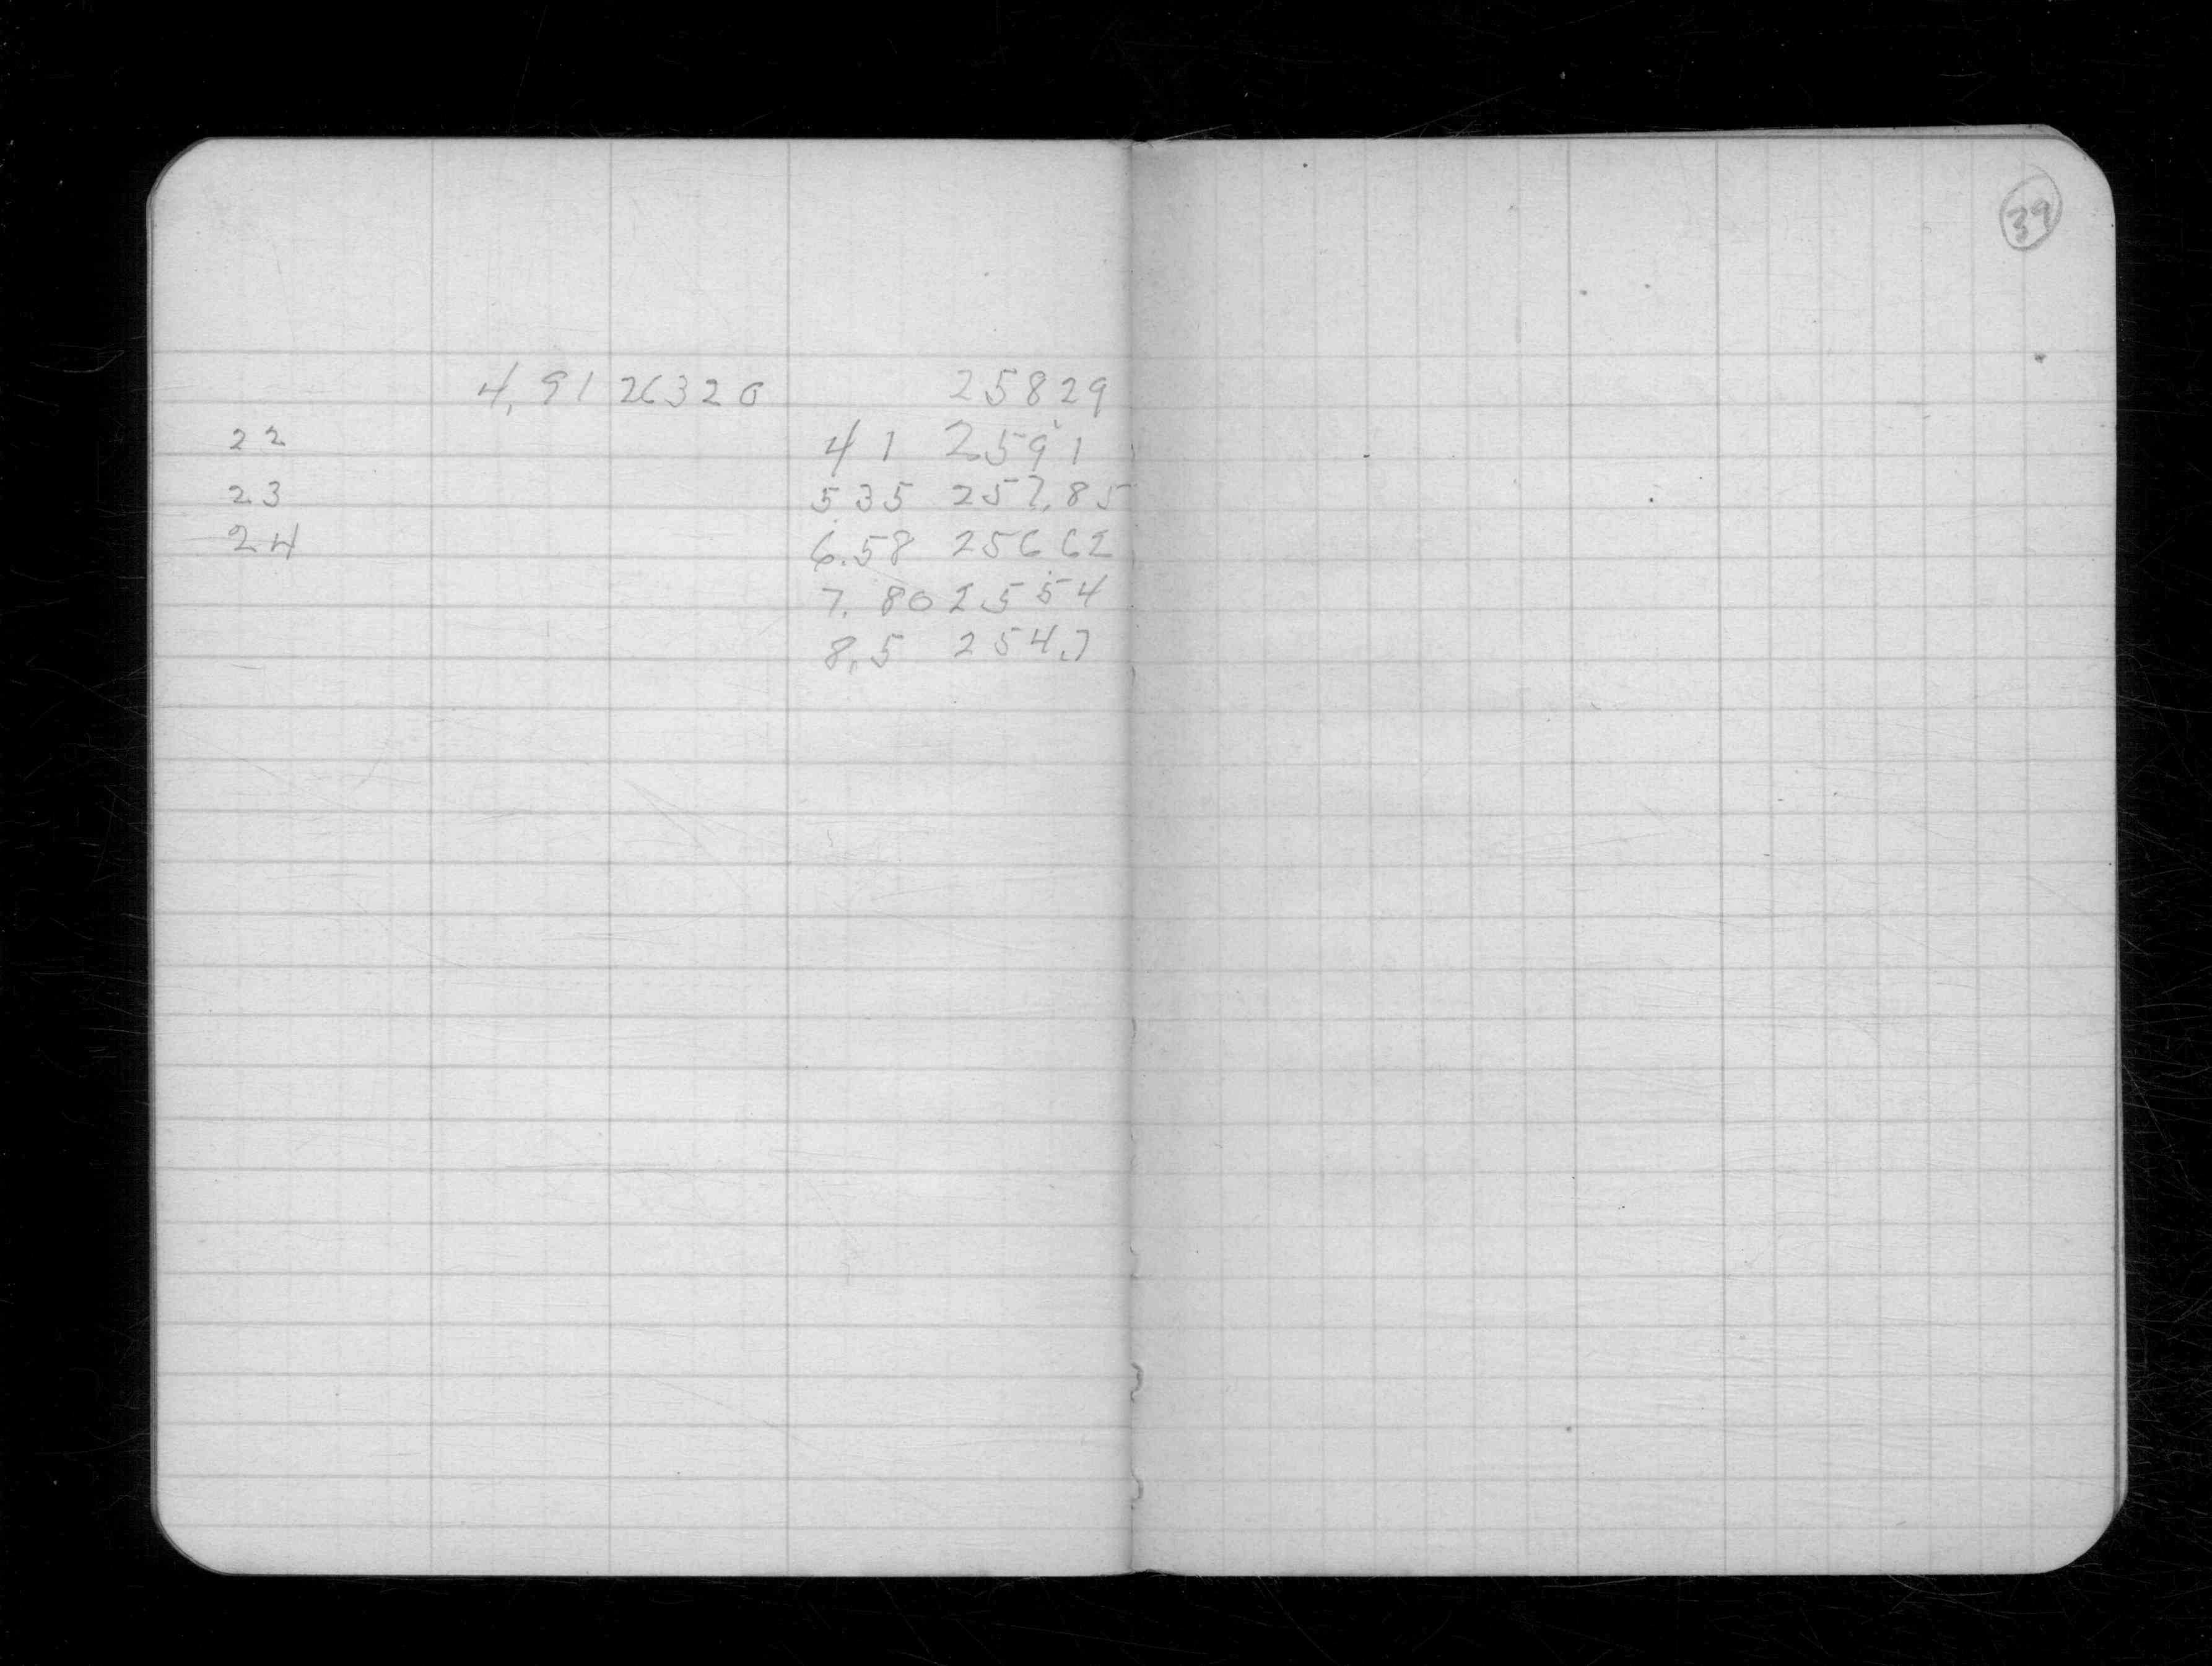 4.91 26320 25829
22 4 1 259 1
23 5 35 257.85
24 6.58 256 62
7.80 255 4
8.5 254.7
39